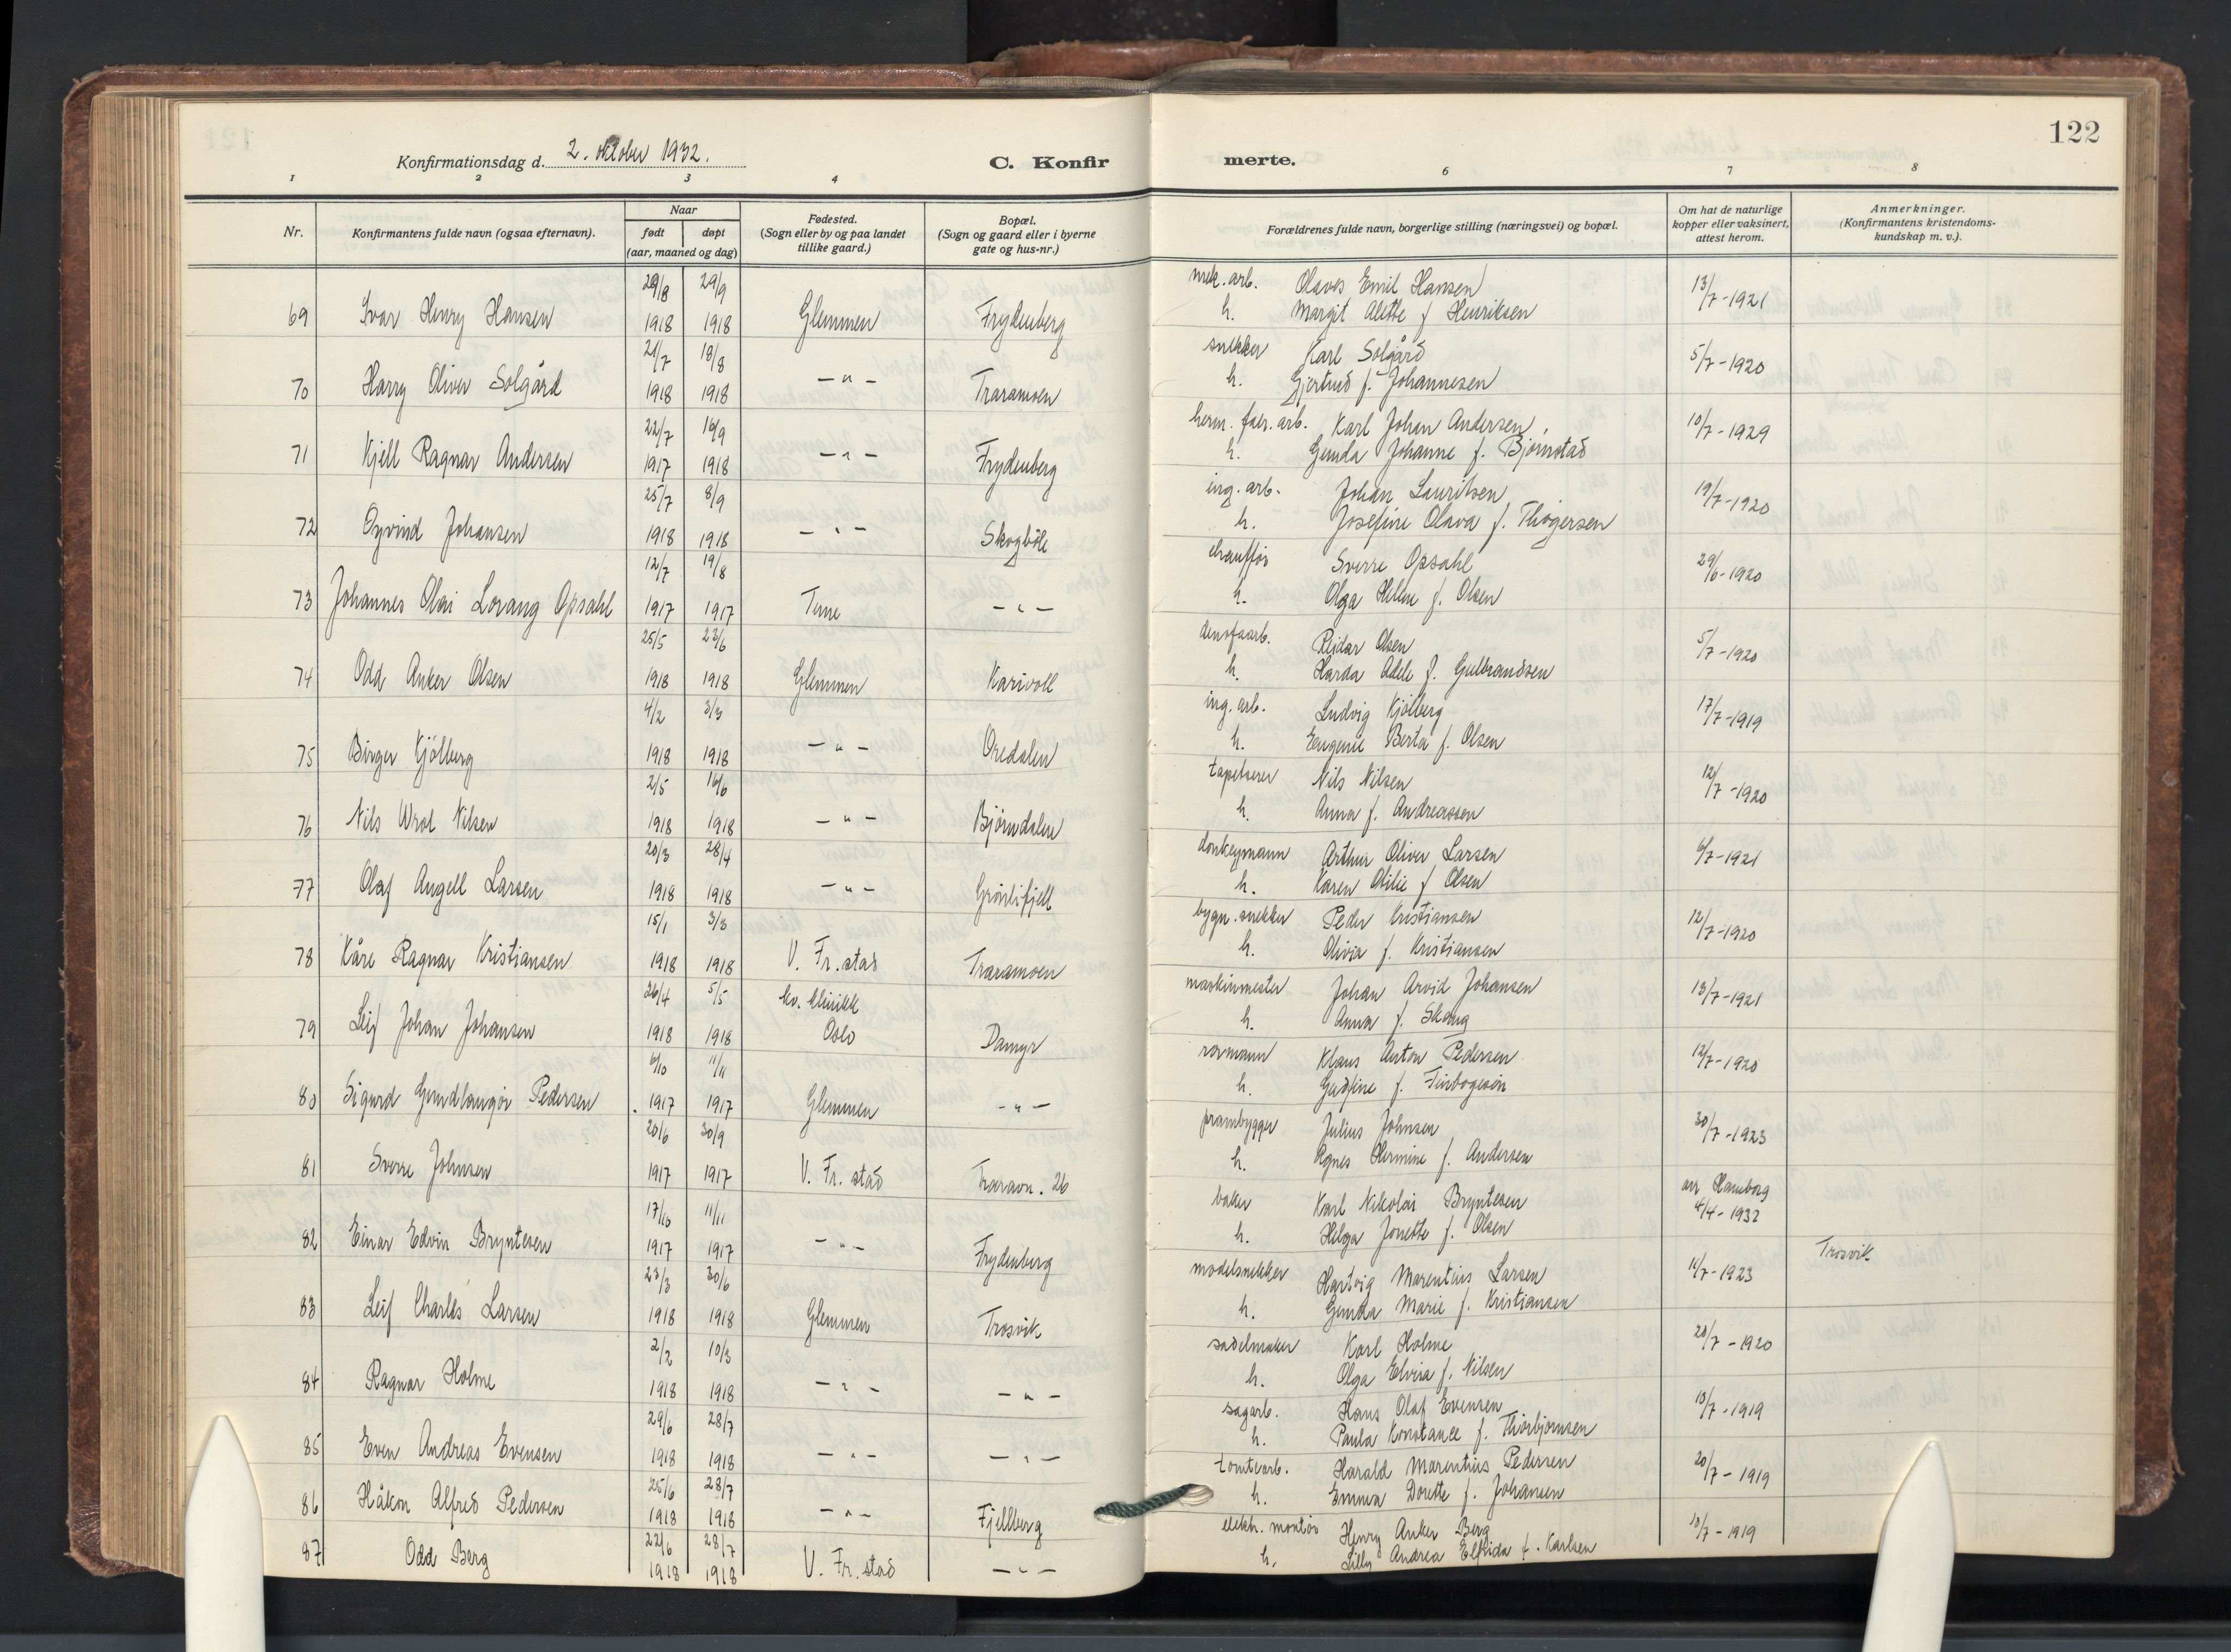 122
Konfirmationsdag d. 2. oktober 1932.
C. Konfir
merte.
1 2 3 4 6 7 8
Nr.
Konfirmantens fulde navn (ogsaa efternavn).
Naar
født
døpt
(aar, maaned og dag)
Fødested.
(Sogn eller by og paa landet
tillike gaard.)
Bopæl.
(Sogn og gaard eller i byerne
gate og hus-nr.)
Forældrenes fulde navn, borgerlige stilling (næringsvei) og bopæl.
Om hat de naturlige
kopper eller vaksinert,
attest herom.
Anmerkninger.
(Konfirmantens kristendoms-
kundskap m. v.).
29/8 29/9 mek. arb. Olaves Emil Hansen 13/7-1921
69 Ivar Henry Hansen 1918 1918 Glemmen Frydenberg h. Margit Alette f Henriksen
21/7 18/8 snekker Karl Solgård 5/7-1920
70 Harry Oliver Solgård 1918 1918 -"- Traramoen h. Gjertrud f. Johannesen
22/7 16/9 herm. fabr. arb. Karl Johan Andersen 10/7-1929
71 Kjell Ragnar Andersen 1917 1918 -"- Frydenberg h. Gunda Johanne f. Bjørnstad
25/7 8/9 ing. arb. Johan Lauritsen 19/7-1920
72 Øyvind Johansen 1918 1918 -"- Skogböle h. Josefine Olava f. Thøgersen
12/7 19/8 chauffør Sverre Opsahl 29/6-1920
73 Johannes Olai Lorang Opsahl 1917 1917 Tune -"- h. Olga Helene f. Olsen
25/5 23/6 denofaarb. Reidar Olsen 5/7-1920
74 Odd Anker Olsen 1918 1918 Glemmen Karivoll h. Harda Adele f. Gulbrandsen
4/2 3/3 ing. arb. Ludvig Kjölberg 17/7-1919
75 Birger Kjölberg 1918 1918 -"- Oredalen h. Eugenie Berta f. Olsen
2/5 16/6 tapetserer Nils Nilsen 12/7-1920
76 Nils Wrol Nilsen 1918 1918 -"- Björndalen h. Anna f. Andreassen
20/3 28/4 donkeymann Arthur Oliver Larsen 6/7-1921
77 Olaf Angell Larsen 1918 1918 -"- Grönlifjell h. Karen Otilie f Olsen
15/1 3/3 bygn. snekker Peder Kristiansen 12/7-1920
78 Kåre Ragnar Kristiansen 1918 1918 V. Fr.stad Traramoen h. Olivia f. Kristiansen
26/4 5/5 kv. klinikk maskinmester Johan Arvid Johansen 13/7-1921
79 Leif Johan Johansen 1918 1918 Oslo Damyr h. Anna f. Skaug
6/10 11/11 rormann Klaus Anton Pedersen 12/7-1920
80 Sigurd Gundlaugur Pedersen 1917 1917 Glemmen -"- h. Gudfine f. Finbogesön
20/6 30/9 prambygger Julius Johnsen 30/7-1923
81 Sverre Johnsen 1917 1917 V. Fr. stad Traravn. 26 h. Agnes Hermine f. Andersen
17/10 11/11 baker Karl Nikolai Bryntesen Hamborg
82 Einar Edvin Bryntesen 1917 1917 -"- Frydenberg h. Helga Jonette f. Olsen 4/4-1932
23/3 30/6 modelsnekker Hartvig Marentius Larsen 14/7-1923 Trosvik
83 Leif Charles Larsen 1918 1918 Glemmen Trosvik h. Gunda Marie f. Kristiansen
2/2 10/3 sadelmaker Karl Holme 20/7-1920
84 Ragnar Holme 1918 1918 -"- -"- h. Olga Elvira f. Nilsen
29/6 28/7 sagarb. Hans Olaf Evensen 18/7-1919
85 Even Andreas Evensen 1918 1918 -"- -"- h. Paula Konstance f. Thorbjørnsen
25/6 28/7 tomtearb. Harald Marentius Pedersen 20/7-1919
86 Håkon Alfred Pedersen 1918 1918 -"- Fjellberg h. Emma Dorette f. Johansen
22/6 28/7 elektr. montør Henry Anker Berg 18/7-1919
87 Odd Berg 1918 1918 V. Fr. stad -"- h. Lilly Andrea Elfrida f. Karlsen